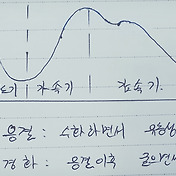 도기 가속기 감속기.
응결 : 수화하면서 유동성
경화 : 응결이후 굳으면서